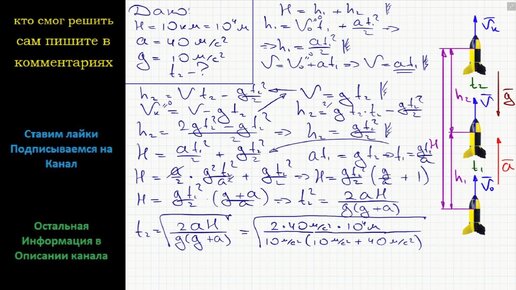 кто смог решить
сам пишите в
комментариях
Ставим лайки
Подписываемся на
Канал
Остальная
Информация в
Описании канала
Дано:
H = 10 км = 10⁴ м
a = 40 м/с²
g = 10 м/с²
t₂ - ?
H = h₁ + h₂
h₁ = V₀t₁ + at₁²/2 ⇒
⇒ h₁ = at₁²/2
V = V₀ + at₁ ⇒ V = at₁
h₂ = Vt₂ - gt₂²/2
Vₖ = V - gt₂ ⇒ V = gt₂
h₂ = gt₂·t₂ - gt₂²/2
h₂ = 2gt₂² - gt₂²/2 ⇒ h₂ = gt₂²/2
H = at₁²/2 + gt₂²/2
at₁ = gt₂ ⇒ t₁ = gt₂/a
H = a/2 · g²t₂²/a² + gt₂²/2 ⇒ H = gt₂²/2 (g/a + 1)
H = gt₂²/2 (g+a/a) ⇒ t₂² = 2aH/g(g+a)
t₂ = √2aH/g(g+a) = √2·40 м/с²·10⁴ м/10 м/с²(10 м/с² + 40 м/с²)
Vₖ
t₂
g
h₂
V
H
t₁
a
h₁
V₀